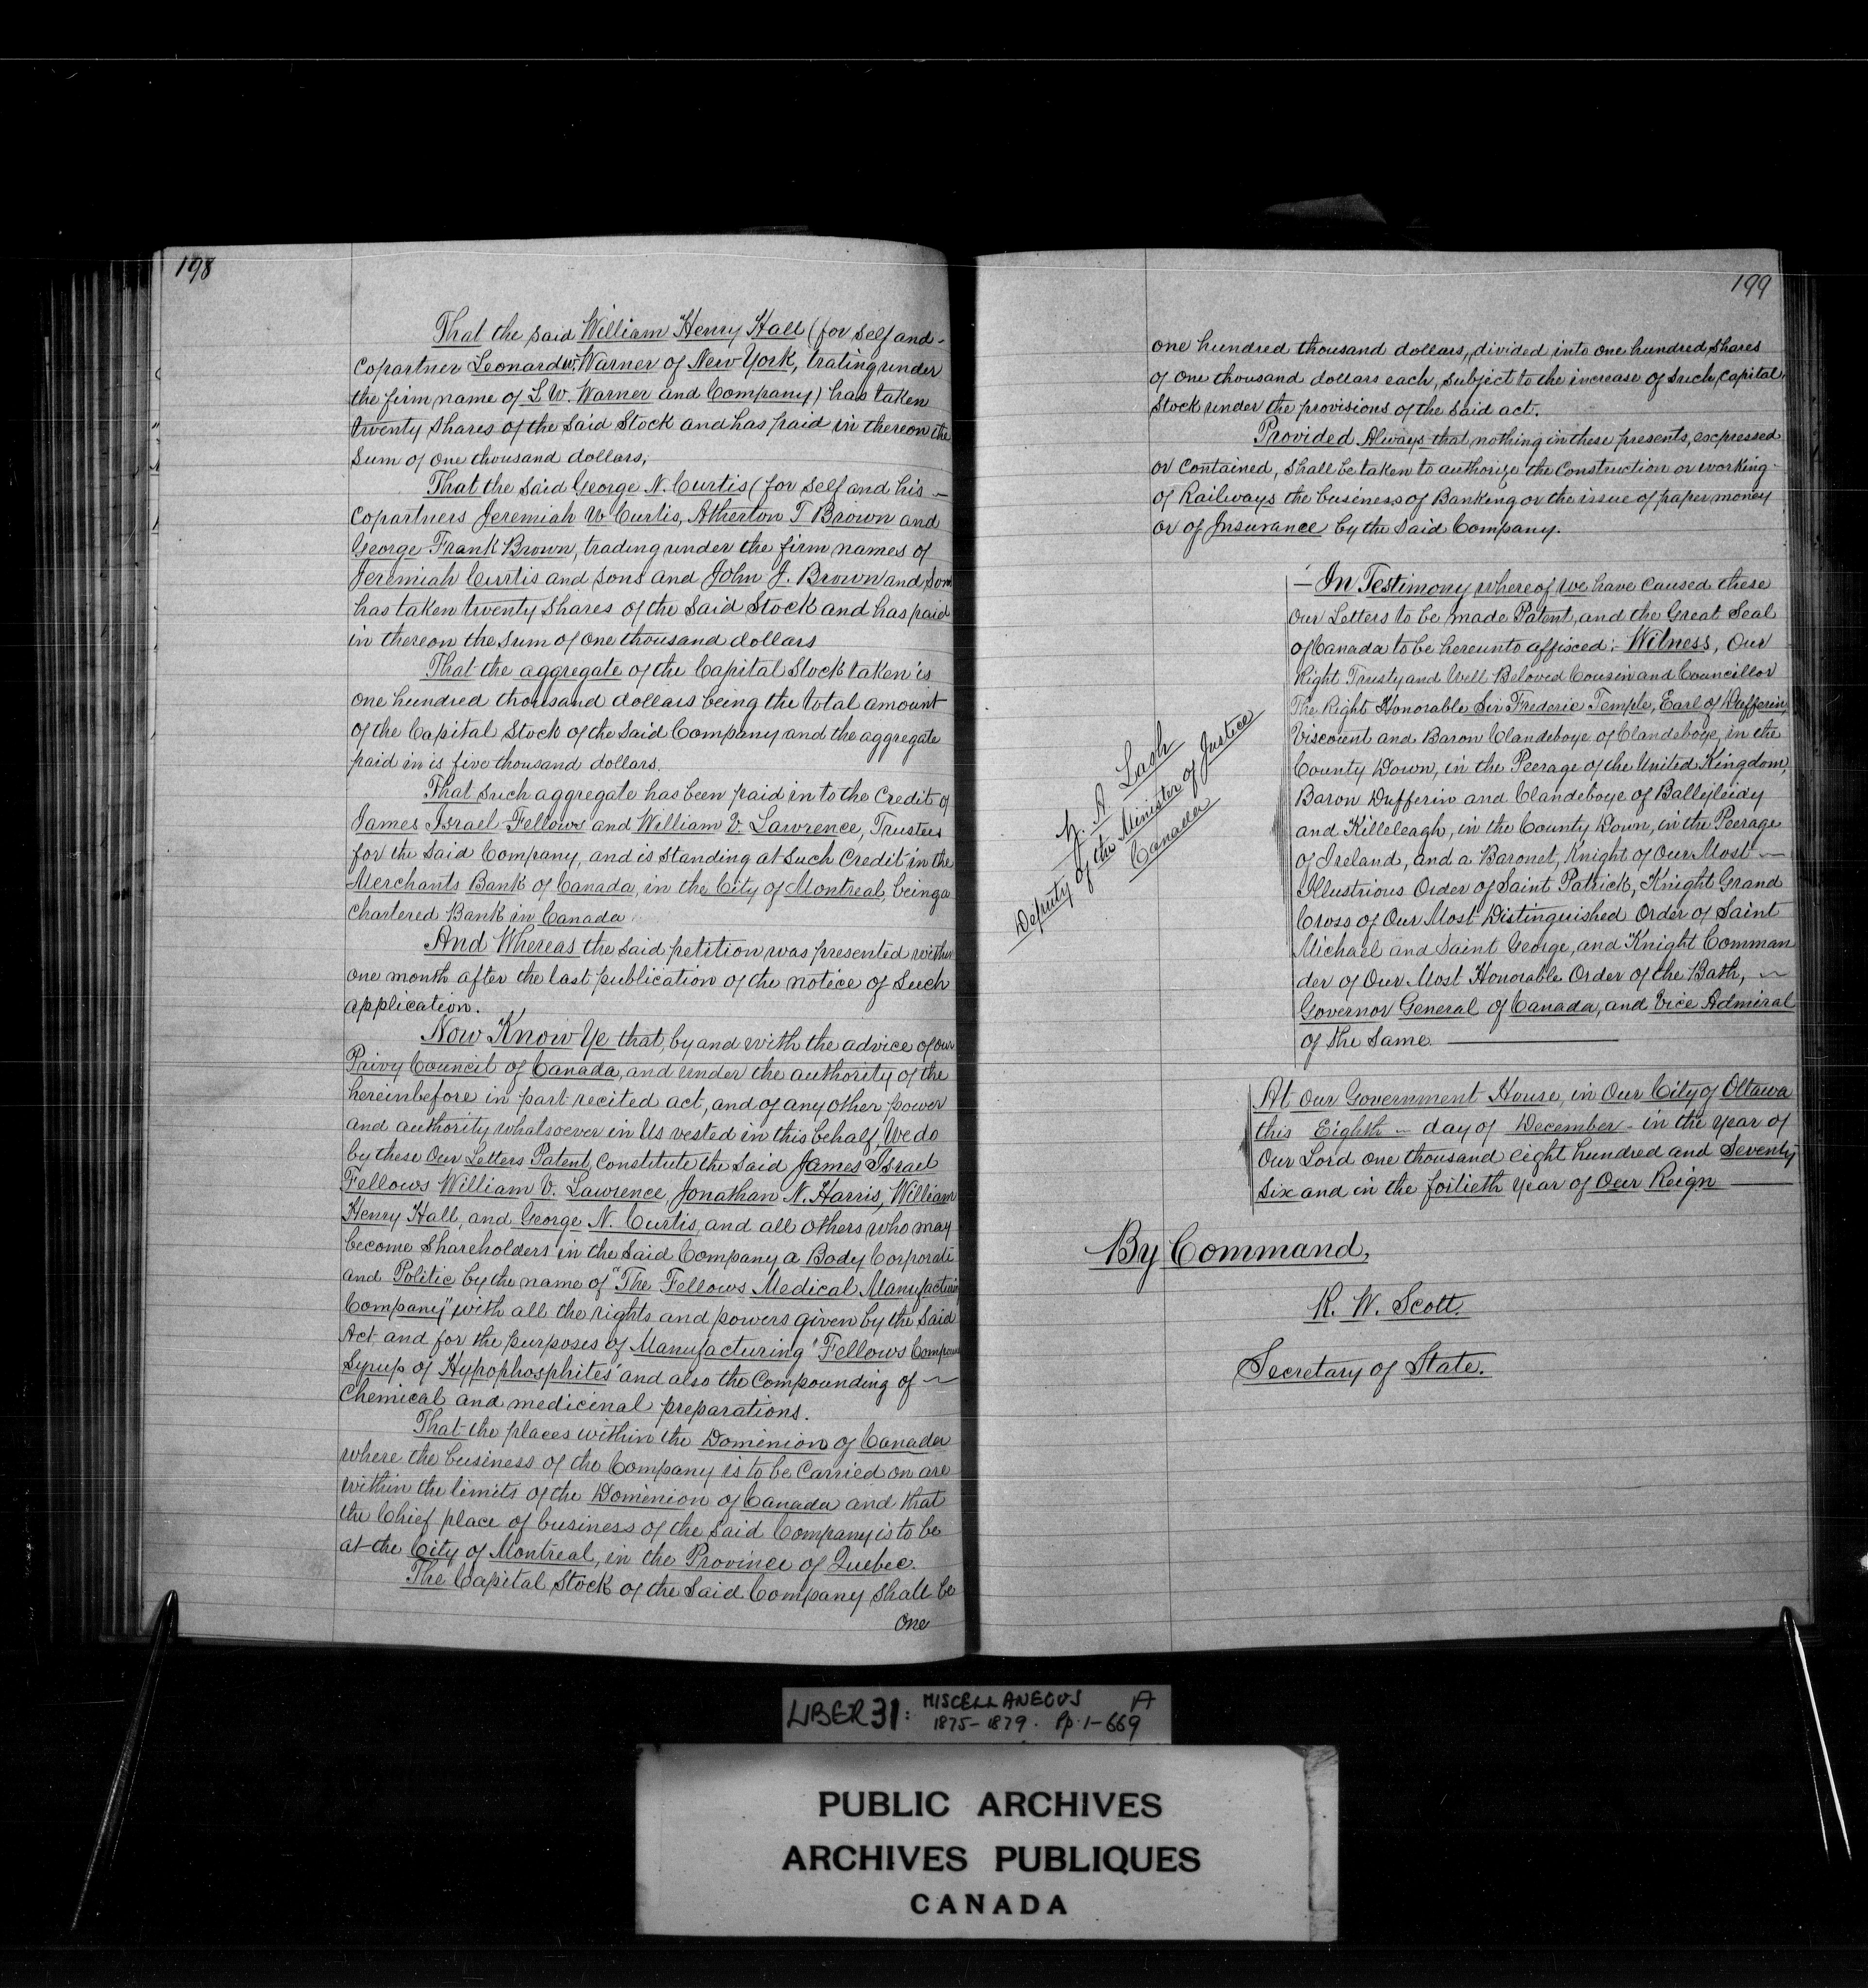 198
That the said William Henry Hall (for self and -
Copartner Leonard W. Warner of New York, trating under
the firm name of L W. Warner and Company) has taken
twenty shares of the said Stock and has paid in thereon the
Sum of one thousand dollars,
That the said George N. Curtis (for self and his -
Copartners Jeremiah W Curtis, Atherton T Brown and
George Frank Brown, trading under the firm names of
Jeremiah Curtis and sons and John J. Brown and Son
has taken twenty shares of the said Stock and has paid
in thereon the sum of one thousand dollars
That the aggregate of the Capital Stock taken is
one hundred thousand dollars being the total amount
of the Capital Stock of the said Company and the aggregate
paid in is five thousand dollars.
That such aggregate has been paid in to the Credit of
James Israel Fellows and William V. Lawrence, Trustees
for the said Company, and is standing at such credit in the
Merchants Bank of Canada, in the City of Montreal, being a
Chartered Bank in Canada
And Whereas the said petition was presented within
one month after the last publication of the notice of such
application.
Now Know Ye that, by and with the advice of our
Privy Council of Canada, and under the authority of the
hereinbefore in part recited act, and of any other power
and authority whatsoever in Us vested in this behalf, We do
by these Our Letters Patent, Constitute the said James Israel
Fellows William V. Lawrence, Jonathan N. Harris, William
Henry Hall, and George N. Curtis, and all others who may
become shareholders in the said Company a Body Corporate
and Politic by the name of "The Fellows Medical Manufacturing
Company", with all the rights and powers given by the said
Act and for the purposes of Manufacturing "Fellows Compound
Syrup of Hypophosphites" and also the Compounding of ~
Chemical and medicinal preparations.
That the places within the Dominion of Canada
where the business of the Company is to be Carried on are
within the limits of the Dominion of Canada and that
the Chief place of business of the said Company is to be
at the City of Montreal, in the Province of Quebec.
The Capital Stock of the said Company shall be
One
199
one hundred thousand dollars, divided into one hundred shares
of one thousand dollars each, subject to the increase of such, Capital
Stock under the provisions of the said act.
Provided Always that nothing in these presents, expressed
or contained, shall be taken to authorize the construction or working
of Railways the business of Banking or the issue of paper money
or of Insurance by the said Company.
— In Testimony whereof we have caused these
Our Letters to be made Patent, and the Great Seal
of Canada to be hereunto affixed:- Witness, Our
Right Trusty and Well Beloved Cousin and Councillor
The Right Honorable Sir Frederic Temple, Earl of Dufferin,
Viscount and Baron Clandeboye of Clandeboye, in the
County Down, in the Peerage of the United Kingdom,
Baron Dufferin and Clandeboye of Ballyleidy
and Killeleagh, in the County Down, in the Peerage
of Ireland, and a Baronet, Knight of Our Most —
Illustrious Order of Saint Patrick, Knight Grand
Cross of Our Most Distinguished Order of Saint
Michael and Saint George, and Knight Comman
der of Our Most Honorable Order of the Bath, ~
Governor General of Canada, and Vice Admiral
of the Same. —
Z. A. Lash
Deputy of the Minister of Justice
Canada
At Our Government House, in Our City of Ottawa
this Eighth ~ day of December - in the year of
Our Lord one thousand eight hundred and Seventy
Six and in the fortieth year of Our Reign —
By Command,
R. W. Scott.
Secretary of State.
LIBER 31: MISCELLANEOUS A
1875-1879. Pp. 1-669
PUBLIC ARCHIVES
ARCHIVES PUBLIQUES
CANADA